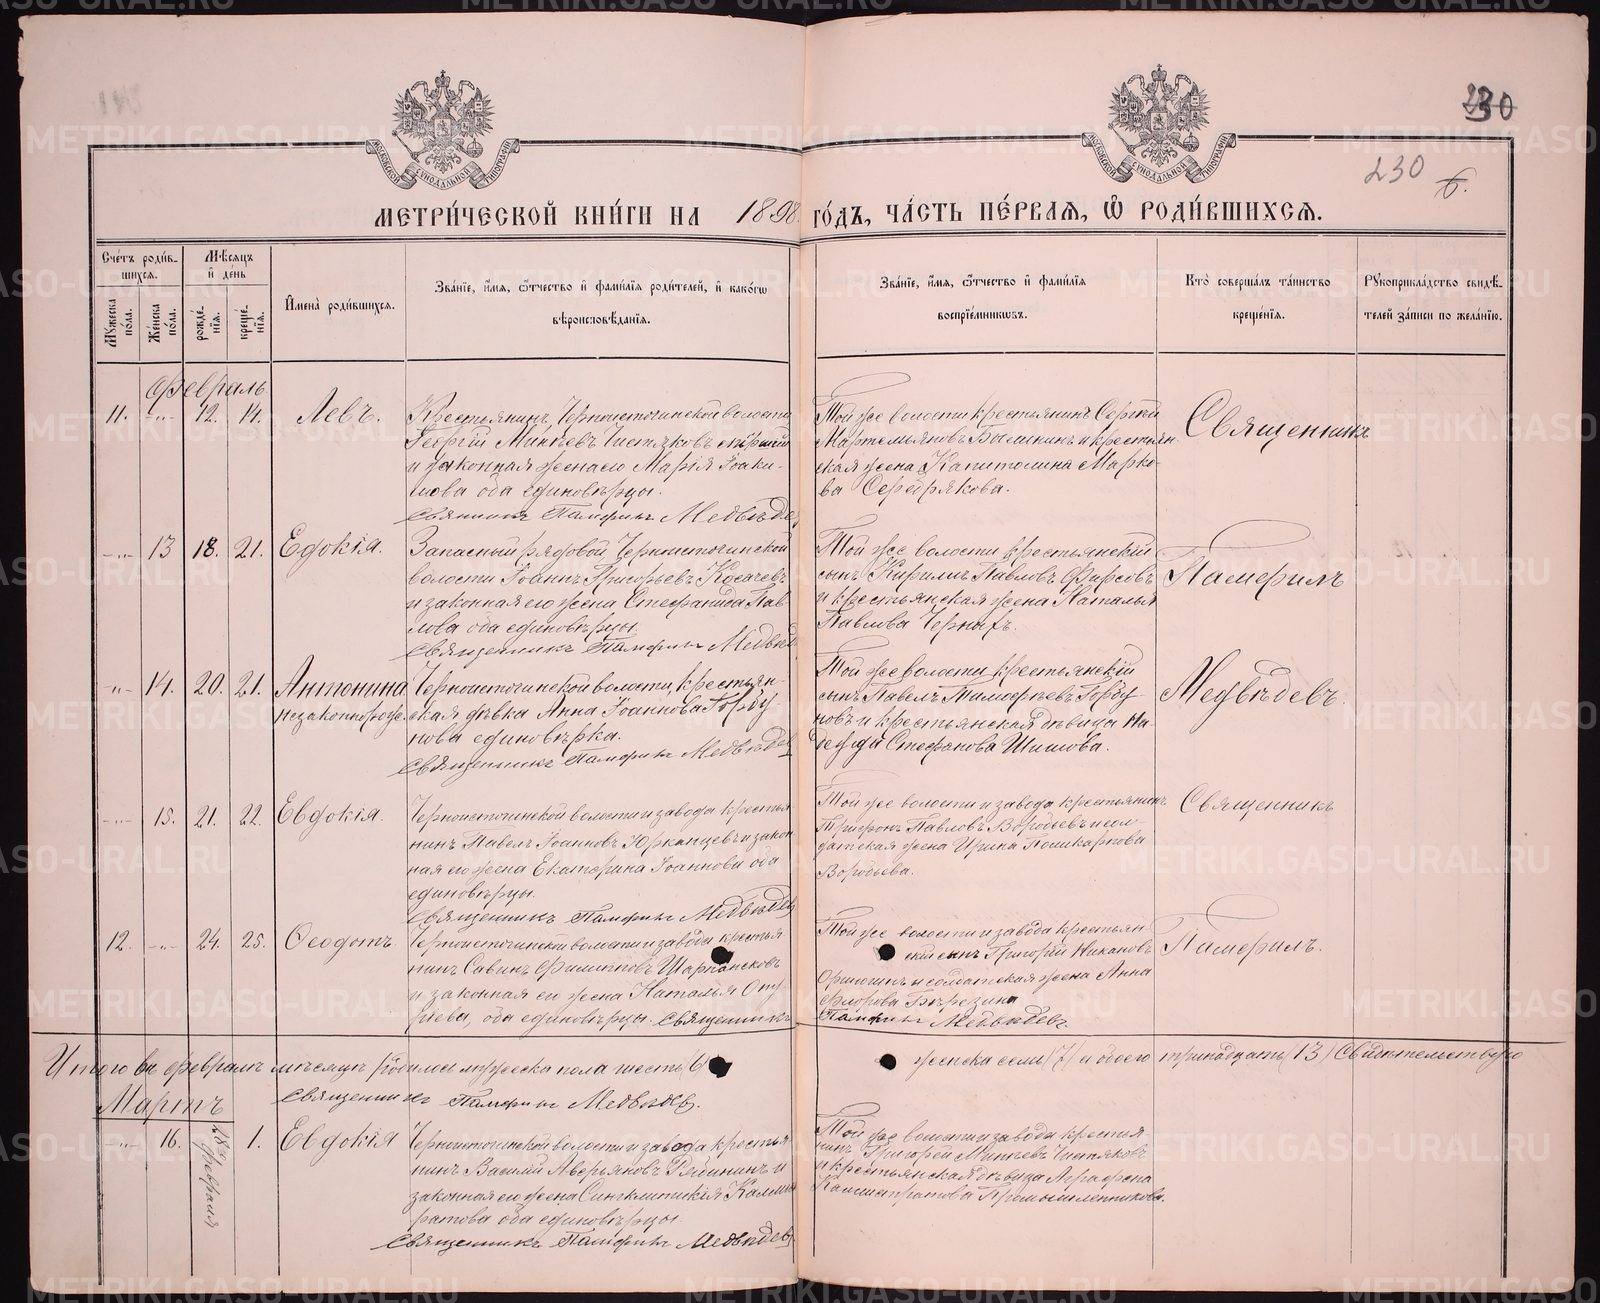 230
230
6.
МЕТРИ́ЧЕСКОЙ КНИ́ГИ НА 1898 ГО́ДЪ, ЧА́СТЬ ПЕ́РВАЯ, Ѿ РОДИ́ВШИХСЯ.
Сче́тъ роди́в-
шихся.
Мѣ́сяцъ
и҆ де́нь
Мꙋ́жеска
по́ла.
Же́нска
по́ла.
рожде́-
нїѧ.
креще́-
нїѧ.
И҆мена̀ роди́вшихсѧ.
Зва́нїе, и҆́мѧ, ѻ҆́тчество и҆ фамѝлїѧ роди́телей, и҆ како́гѡ
вѣроисповѣ́данїѧ.
Зва́нїе, и҆́мѧ, ѻ҆́тчество и҆ фамѝлїѧ
воспрїе́мникѡвъ.
Кто̀ соверша́лъ та́инство
креще́нїѧ.
Рꙋкоприкла́дство свидѣ́-
телей за́писи по жела́нїю.
Февраль
11. -"- 12. 14. Левъ.
Крестьянинъ Черноисточинской волости
Георгій Михѣевъ Чистяковъ
и законная жена его Марія Іоаки-
мова оба единовѣрцы.
Священникъ Памфилъ Медвѣдев
Той же волости крестьянинъ Сергѣй
Мартемьяновъ и крестьян
ская жена Капитолина Марко-
ва Серебрякова.
Священникъ
-"- 13 18. 21. Едокія.
Запасный рядовой Черноисточинской
волости Іоаннъ Григорьевъ Косачевъ
и законная его жена Стефанида Пав-
лова оба единовѣрцы.
Священникъ Памфилъ Медвѣд
Той же волости крестьянскій
сынъ Кирилъ Павловъ Фирсовъ
и крестьянская жена Наталья
Павлова Черныхъ.
Памфилъ
-"- 14. 20. 21. Антонина
незаконнорожд.
Черноисточинской волости, крестьян-
ская дѣвка Анна Іоаннова Горбу-
нова единовѣрка.
Священникъ Памфилъ Медвѣдев
Той же волости крестьянскій
сынъ Павелъ Тимофѣевъ Горбу
новъ и крестьянская дѣвица На
дежда Стефанова Шилова.
Медвѣдевъ.
-"- 15. 21. 22. Евдокія.
Черноисточинской волости и завода крестья
нинъ Павелъ Іоанновъ Юрканцевъ и закон
ная его жена Екатерина Іоаннова оба
единовѣрцы.
Священникъ Памфилъ Медвѣдев
Той же волости и завода крестьянинъ
Трифонъ Павловъ Воробьевъ и сол-
датская жена Ирина Поликарпова
Воробьева.
Священникъ
12. -"- 24. 25. Ѳеодотъ.
Черноисточинской волости и завода крестья
нинъ Савинъ Филипповъ Шарпансковъ
и законная его жена Наталья
оба единовѣрцы. Священникъ
Той же волости и завода крестьян-
скій сынъ Григорій Никановъ
и солдатская жена Анна
Флорова Березина
Памфилъ Медвѣдевъ.
Памфилъ.
Итого въ февралѣ мѣсяцѣ родилось мужеска пола шесть (6) женска семь (7) и обоего тринадцать (13) Свидѣтельствую
Священникъ Памфилъ Медвѣдевъ.
Мартъ
-"- 16. 28 февраля 1. Евдокія
Черноисточинской волости и завода крестья
нинъ Василій Аверьяновъ и
законная его жена Синклитикія
ратова оба единовѣрцы.
Священникъ Памфилъ Медвѣдев
Той же волости и завода крестья
нинъ Григорій Михѣевъ Чистяковъ
и крестьянская дѣвица Аграфена
Каллистратова Промышленникова.
METRIKI.GASO-URAL.RU